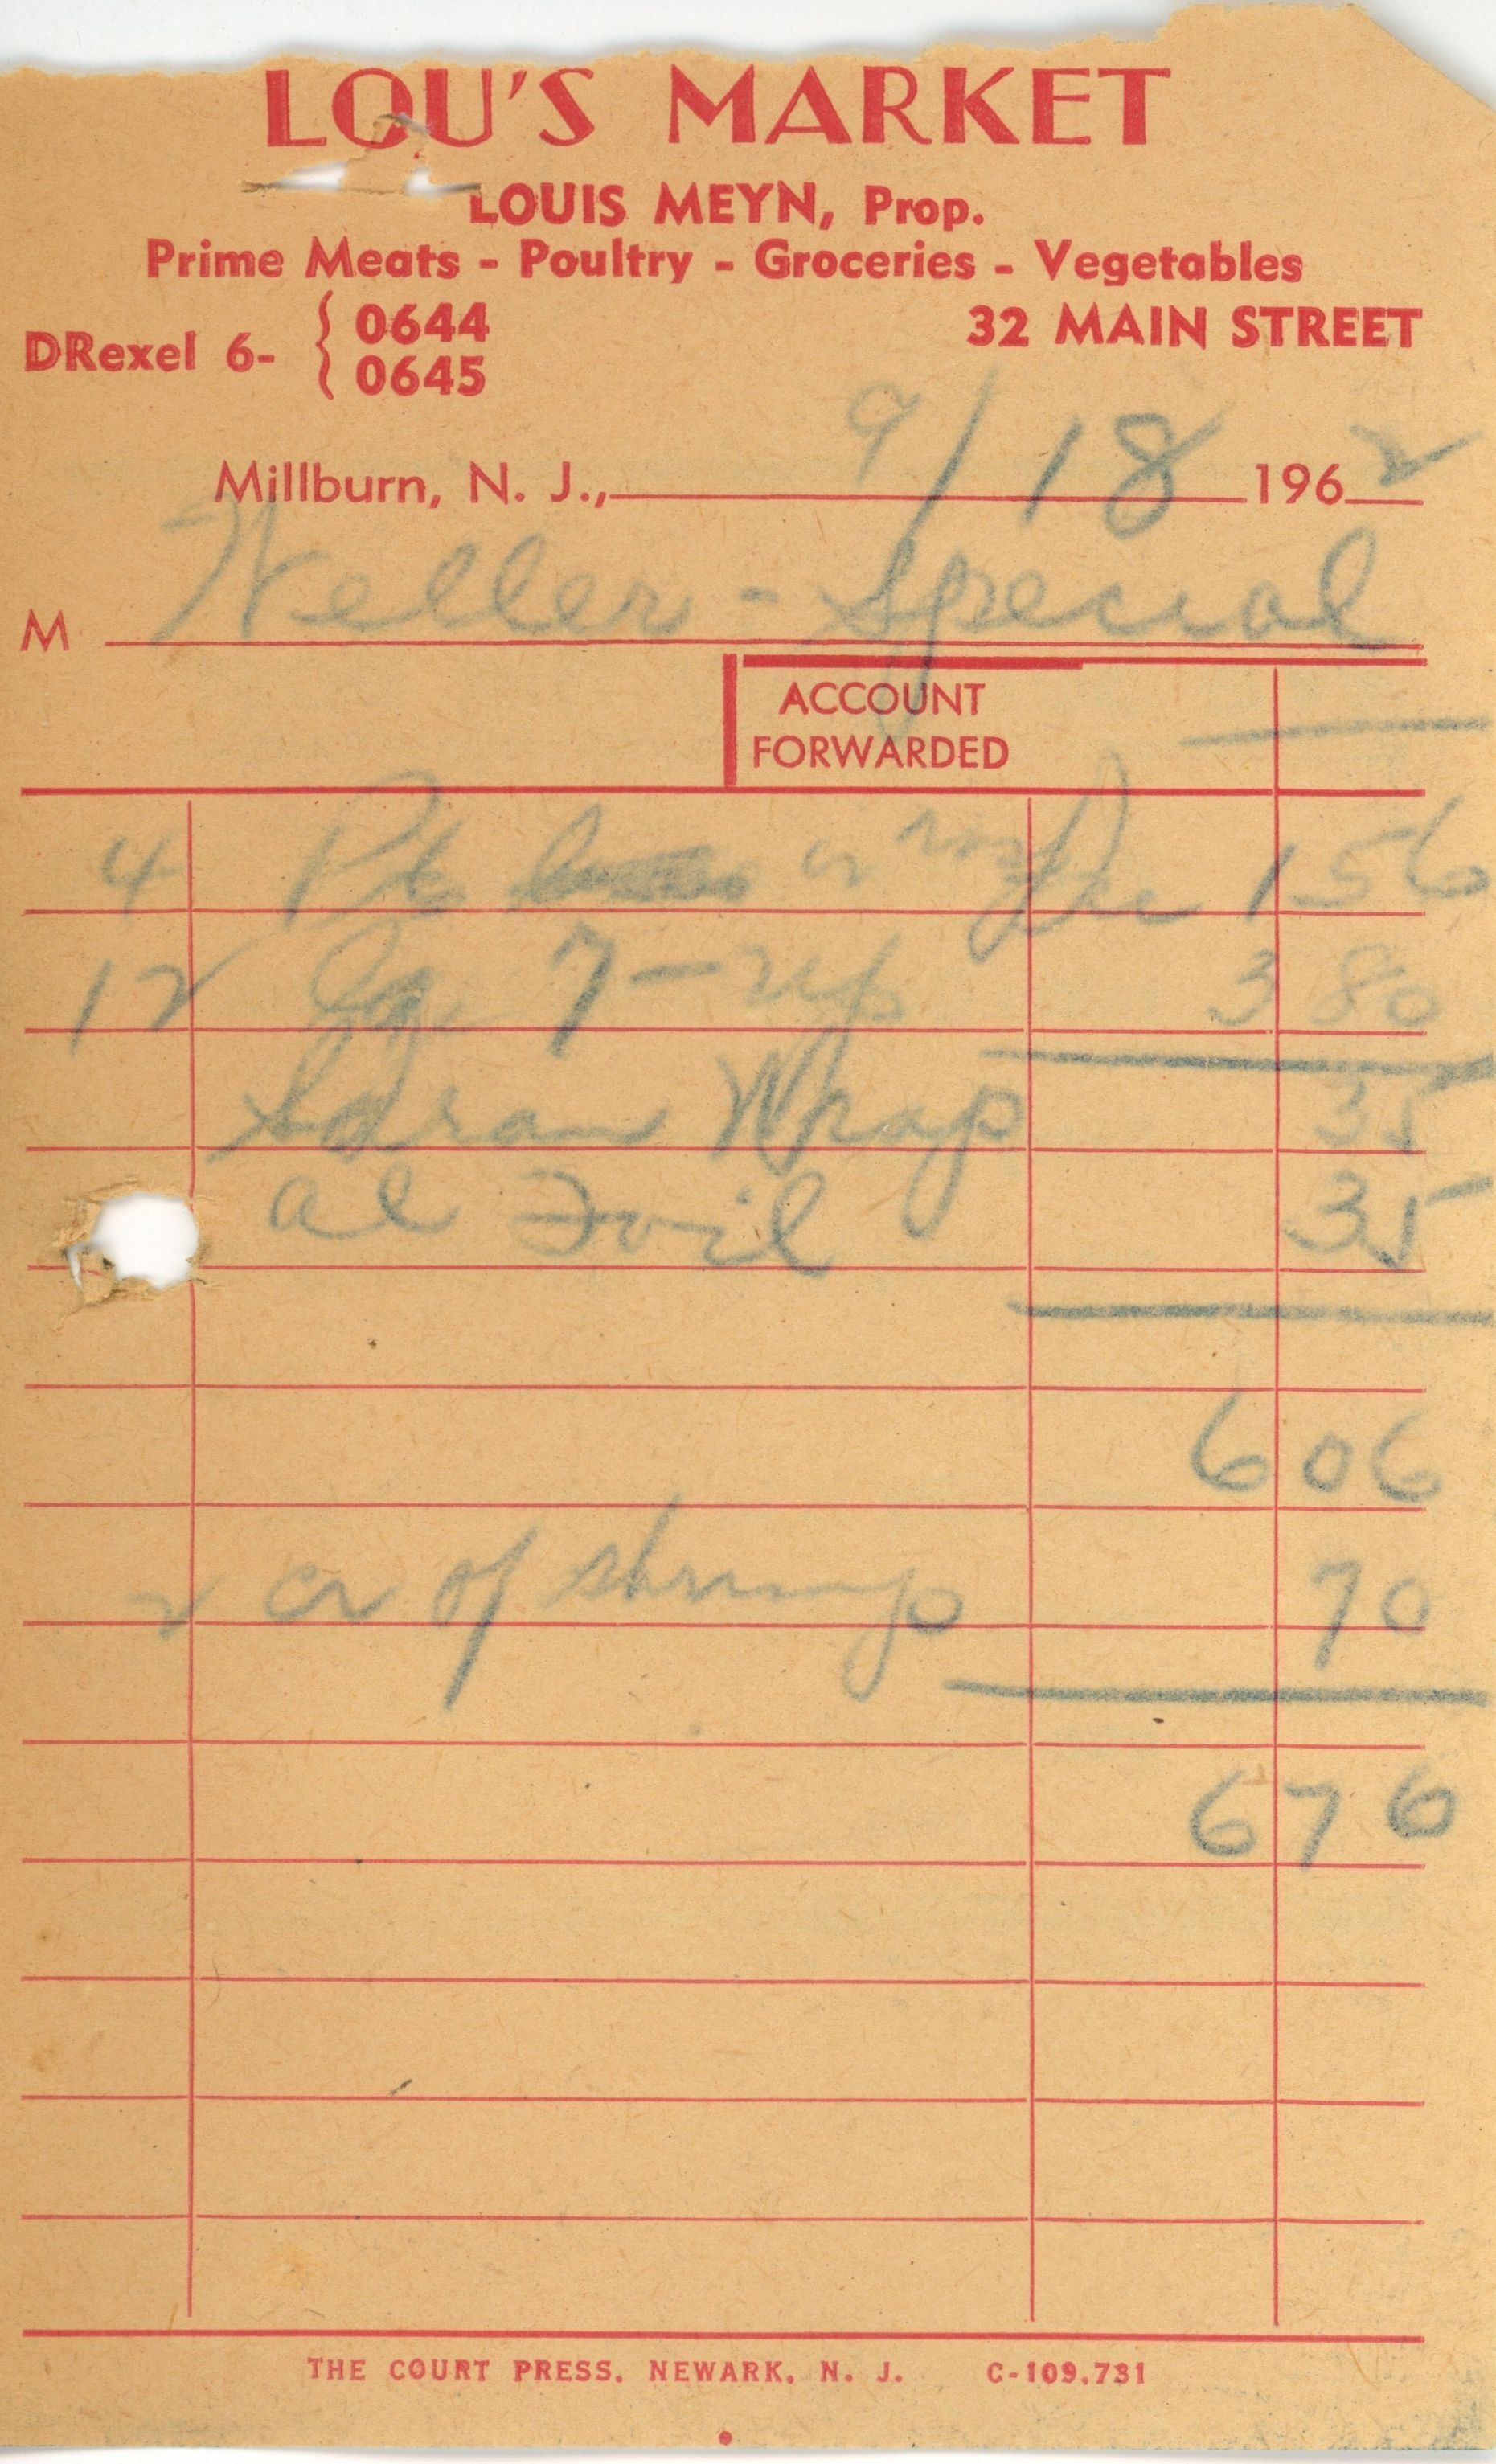 LOU'S MARKET
LOUIS MEYN, Prop.
Prime Meats - Poultry - Groceries - Vegetables
DRexel 6- { 0644 0645 32 MAIN STREET
Millburn, N. J., 9/18 1962
M Weller - Special
ACCOUNT
FORWARDED
4 Pt 1 56
12 7-up 3 80
Saran Wrap 35
al Foil 35
6 06
2 cn of shrimp 70
6 76
THE COURT PRESS, NEWARK, N. J. C-109,731